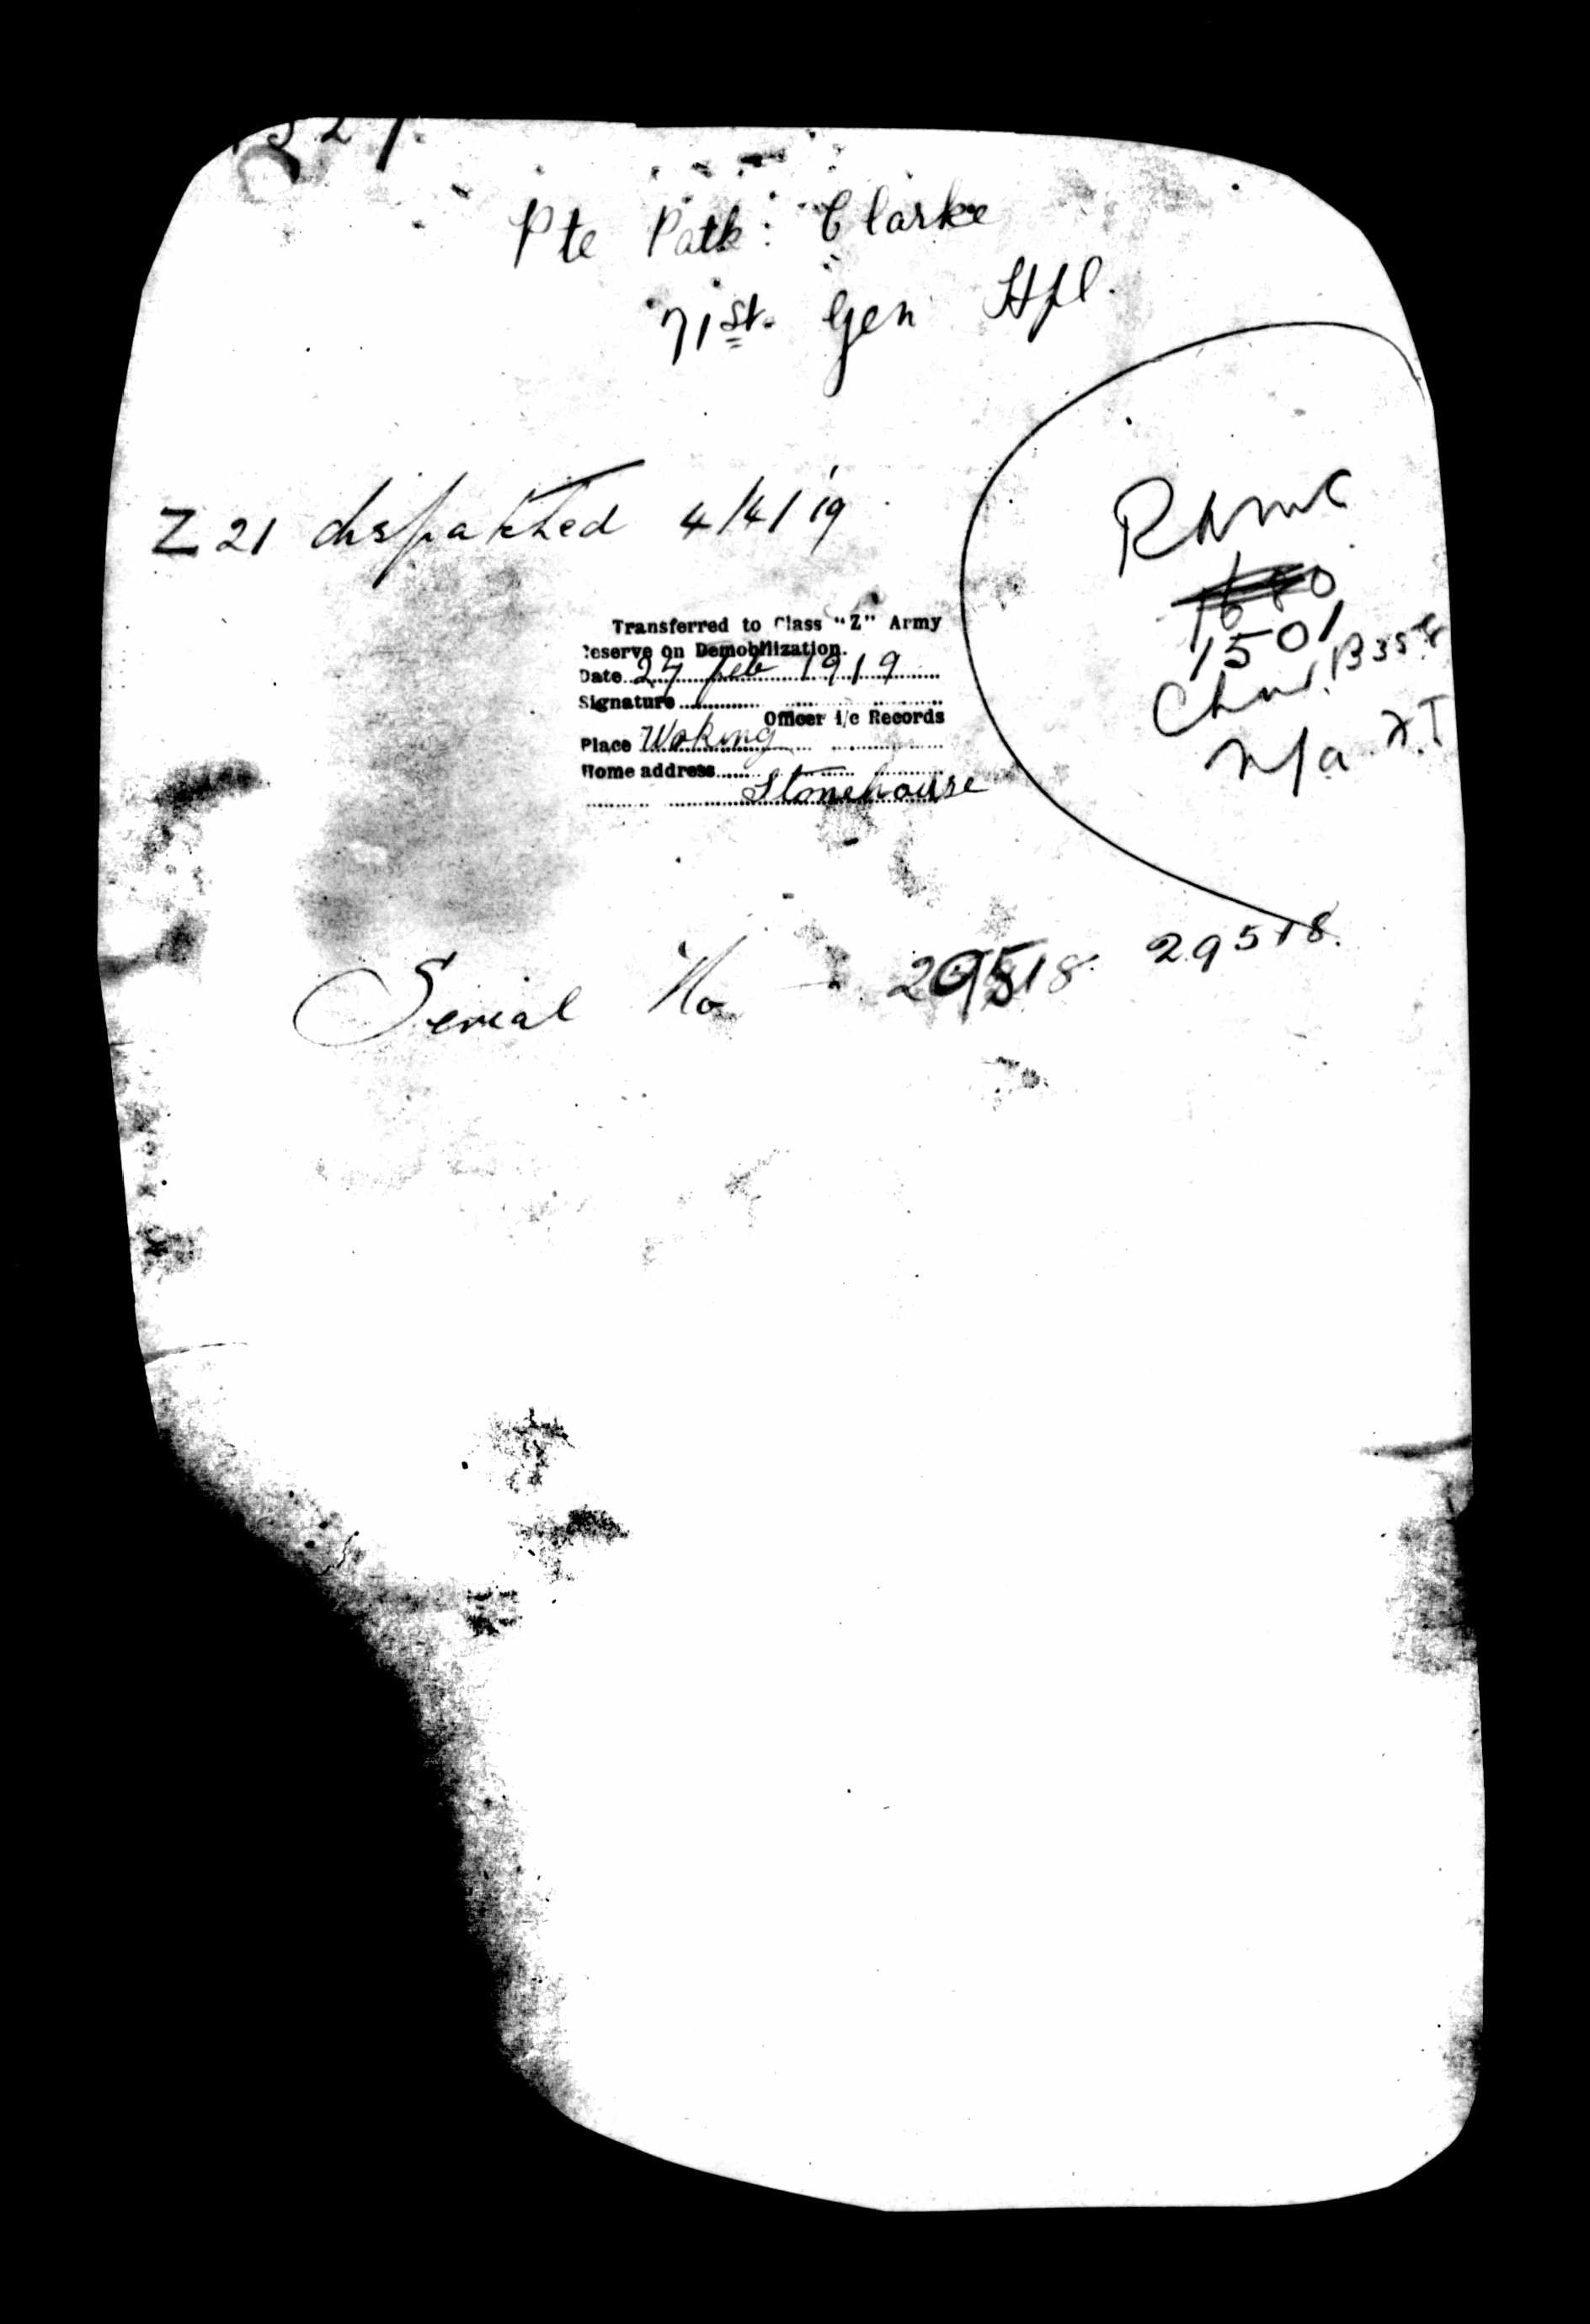 Pte Patk: Clarke
71st. Gen Hpl.
Z 21 dispatched 4/4/19
Transferred to Class "Z" Army
Reserve on Demobilization.
Date 27 Feb 1919
Signature
Officer i/c Records
Place Woking
Home address
Stonehouse
RAMC
1501
B35
n/a
Serial No 29518 29518.